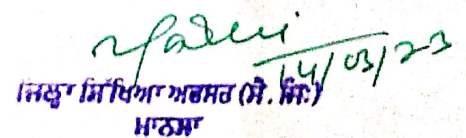 14/03/23
ਜਿਲ੍ਹਾ ਸਿੱਖਿਆ ਅਫਸਰ (ਸੈ. ਸਿ:)
ਮਾਨਸਾ